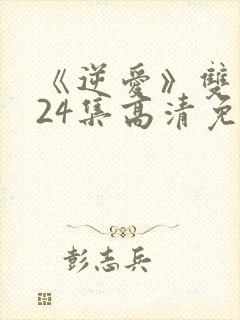 《逆愛》雙
24集高清免
彭志兵